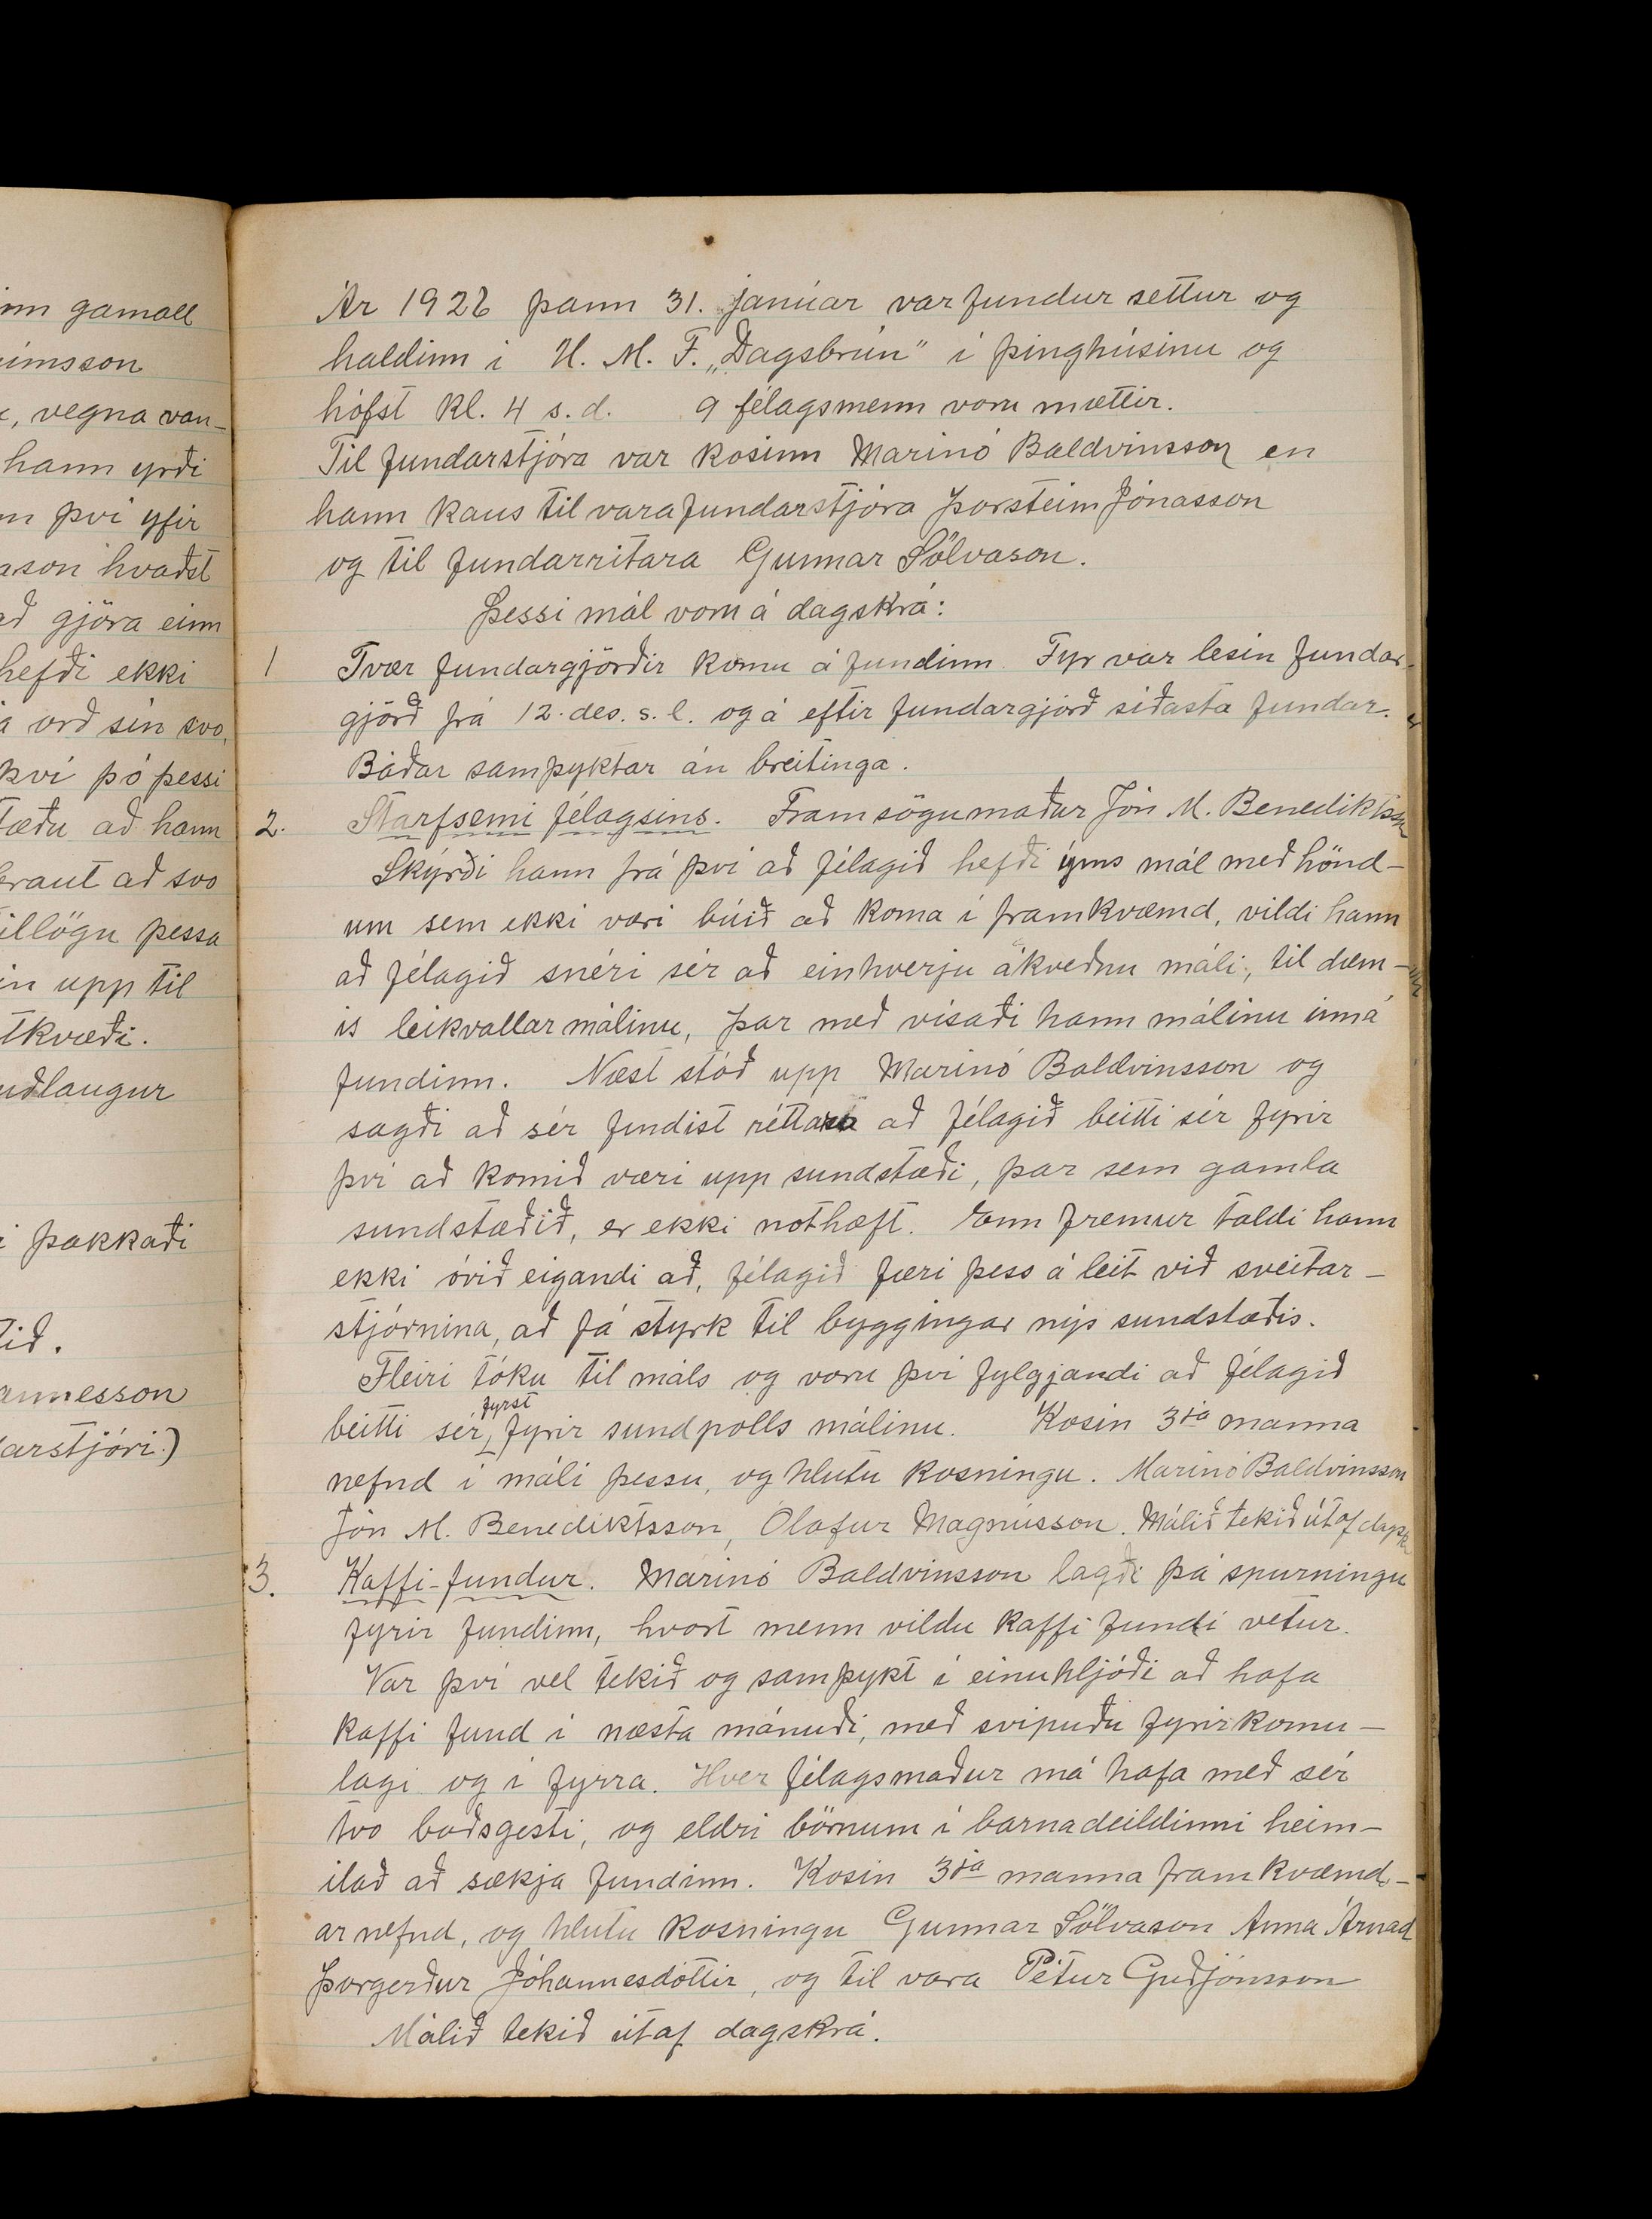 inn gamall
ímsson
, vegna van-
hann yrði
n því yfir
ason kvaðst
að gjöra einn
hefði ekki
a orð sín svo,
því þó þessi
tæðu að hann
braut að svo
tillögu þessa
in upp til
tkvæði.
uðlaugur
i þakkaði
tið.
annesson
arstjóri.)
Ár 1928 þann 31. janúar var fundur settur og
haldinn í U. M. F. „Dagsbrún" í þinghúsinu og
hófst kl. 4 s. d. 9 félagsmenn voru mættir.
Til fundarstjóra var kosinn Marinó Baldvinsson en
hann kaus til varafundarstjóra Þorstein Jónasson
og til fundarritara Gunnar Sölvason.
Þessi mál voru á dagskrá:
1 Tvær fundargjörðir komu á fundinn. Fyr var lesin fundar-
gjörð frá 12. des. s. l. og á eftir fundargjörð síðasta fundar.
Báðar samþyktar án breitinga.
2. Starfsemi félagsins. Framsögumaður Jón M. Benediktsson
Skýrði hann frá því að félagið hefði ýms mál með hönd-
um sem ekki væri búið að koma í framkvæmd, vildi hann
að félagið snéri sér að einhverju ákveðnu máli, til dæm-
is leikvallarmálinu, þar með vísaði hann málinu inná
fundinn. Næst stóð upp Marinó Baldvinsson og
sagði að sér findist réttara að félagið beitti sér fyrir
því að komið væri upp sundstæði, þar sem gamla
sundstæðið, er ekki nothæft. Enn fremur taldi hann
ekki óvið eigandi að, félagið færi þess á leit við sveitar-
stjórnina, að fá styrk til byggingar nýs sundstæðis.
Fleiri tóku til máls og voru því fylgjandi að félagið
beitti sér fyrst fyrir sundpolls málinu. Kosin 3ja manna
nefnd í máli þessu, og hlutu kosningu. Marinó Baldvinsson
Jón M. Benediktsson, Ólafur Magnússon. Málið tekið útaf dagsk
3. Kaffi-fundur. Marinó Baldvinsson lagði þá spurningu
fyrir fundinn, hvort menn vildu kaffi fund í vetur.
Var því vel tekið og samþykt í einuhljóði að hafa
kaffi fund í næsta mánuði, með svipuðu fyrirkomu-
lagi og í fyrra. Hver félagsmaður má hafa með sér
tvo boðsgesti, og eldri börnum í barnadeildinni heim-
ilað að sækja fundinn. Kosin 3ja manna framkvæmd-
ar nefnd, og hlutu kosningu Gunnar Sölvason Anna Árnad
Þorgerður Jóhannesdóttir, og til vara Pétur Guðjónsson
Málið tekið útaf dagskrá.